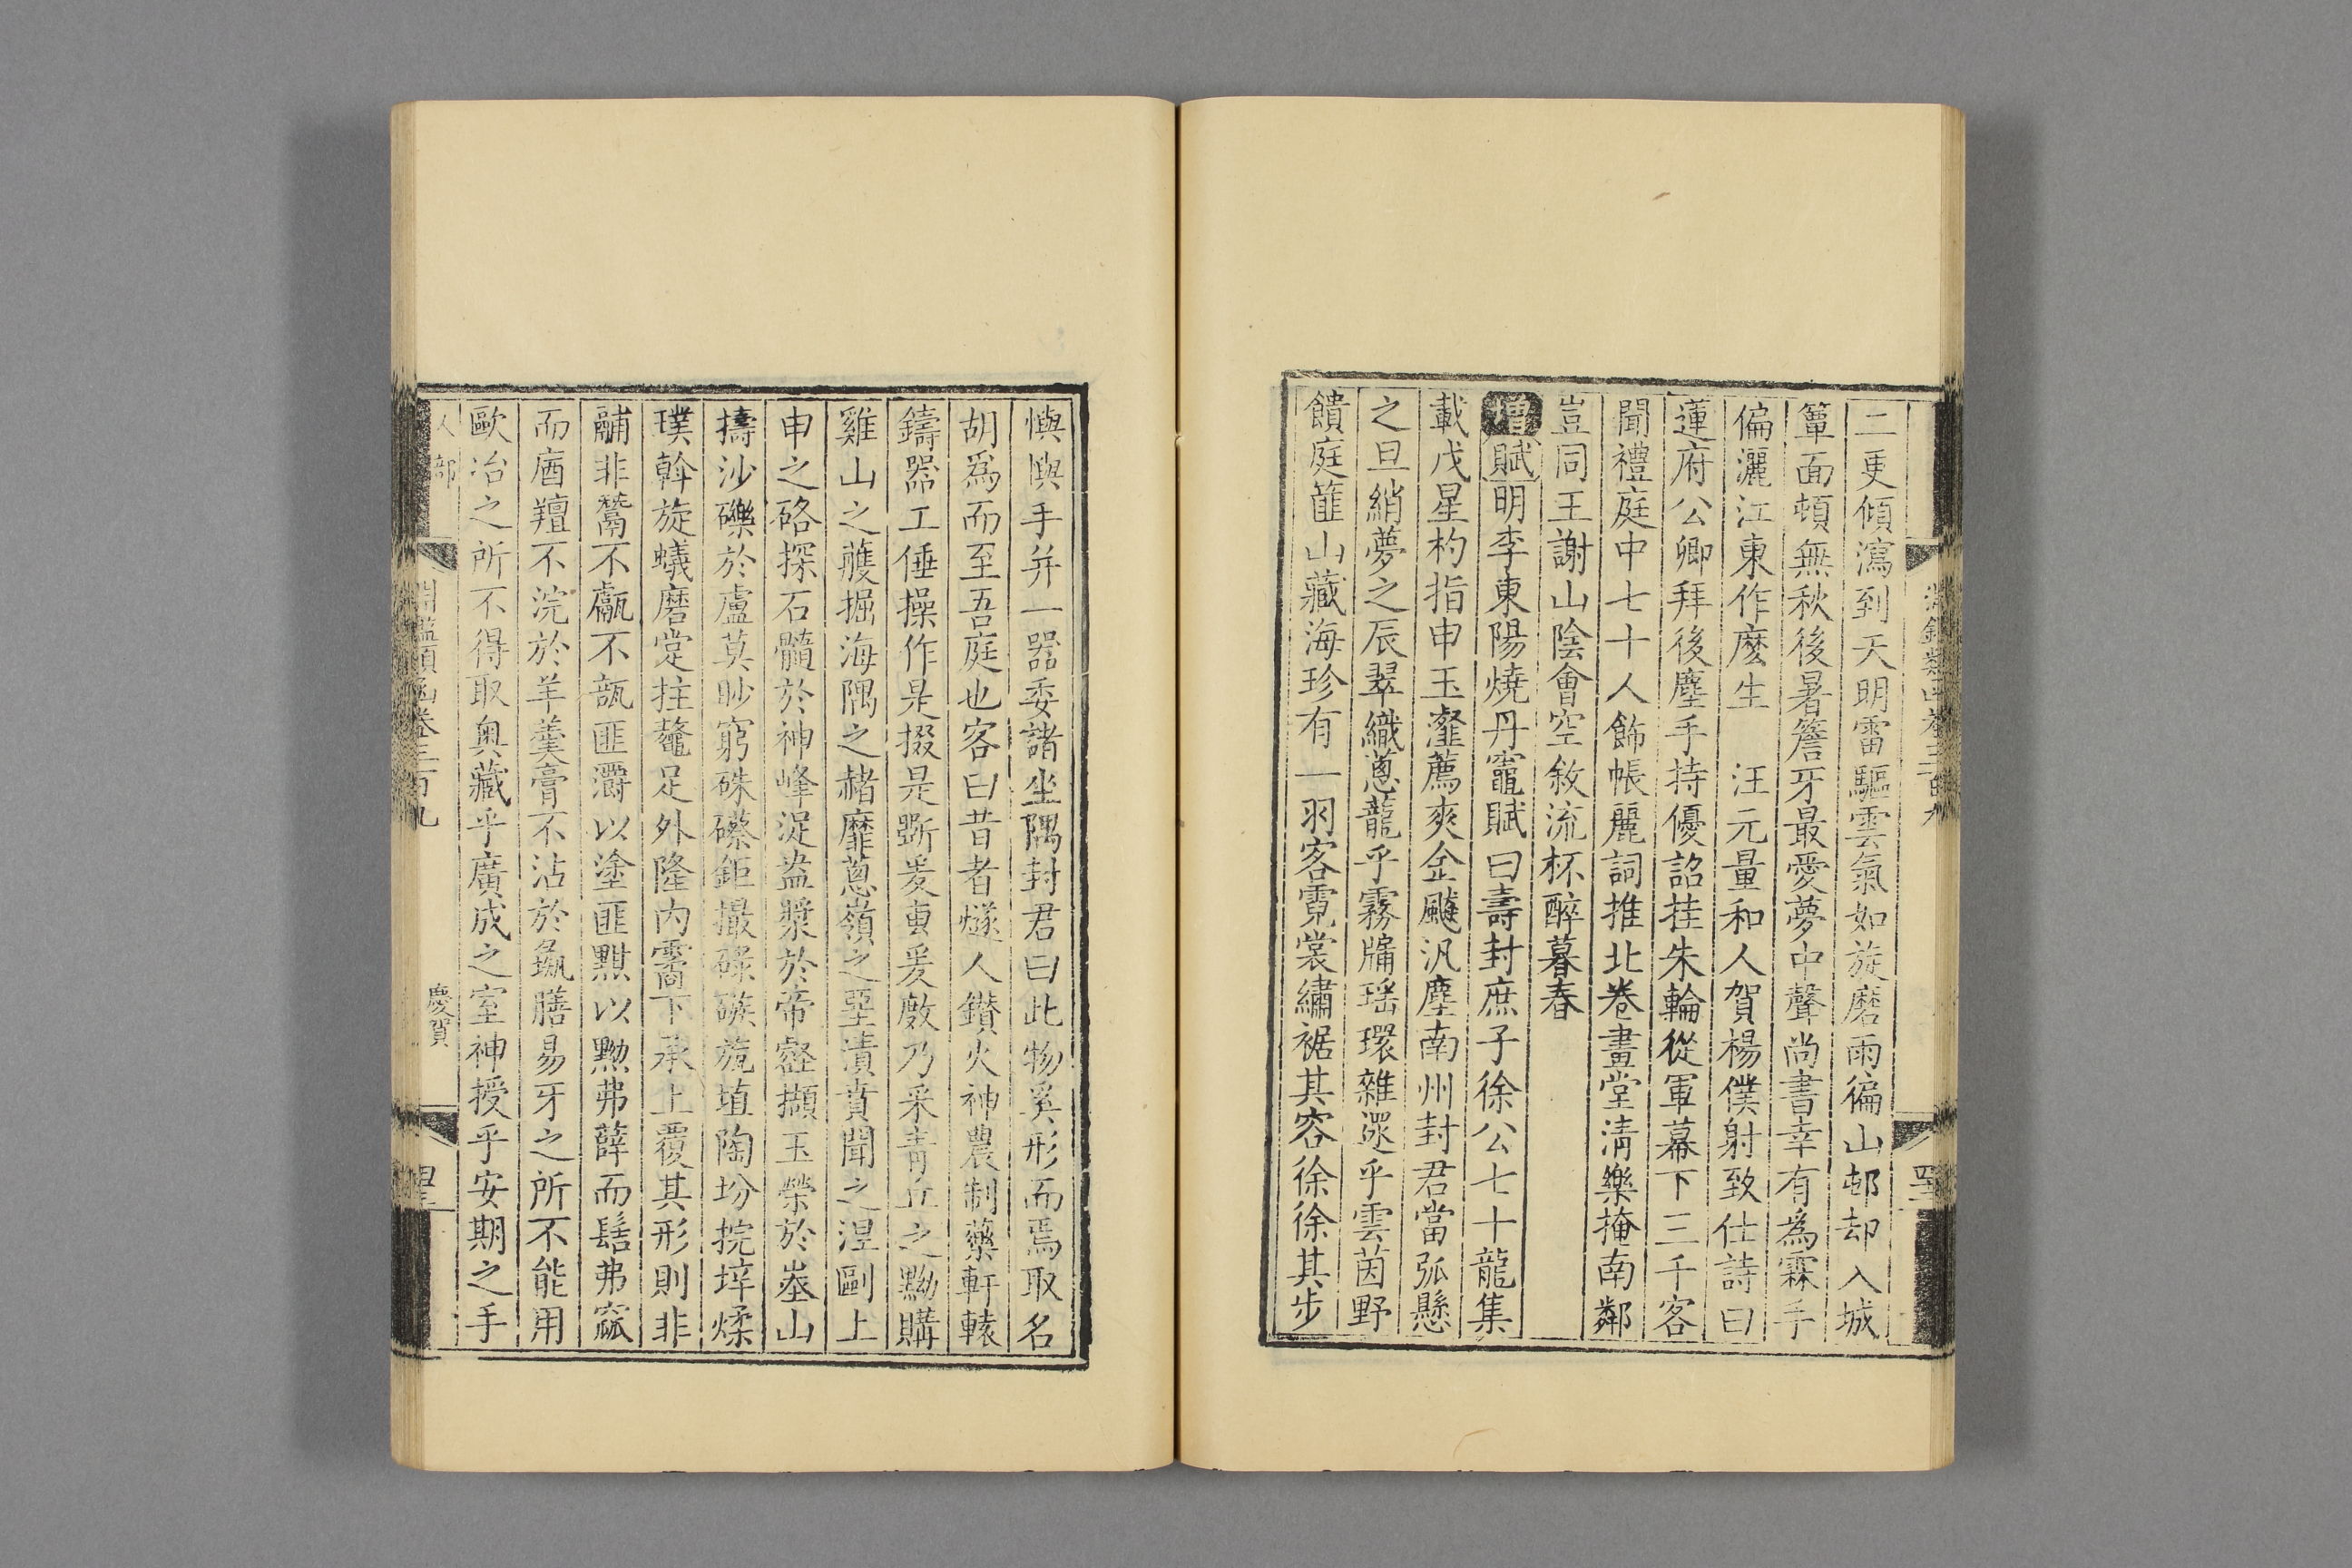 二更傾瀉到天明雷驅雲氣如旋磨雨徧山邨却入城
簟面頓無秋後暑簷牙最愛夢中聲尚書幸有為霖手
偏灑江東作麽生 汪元量和人賀楊僕射致仕詩曰
蓮府公卿拜後塵手持優詔挂朱輪從軍幕下三千客
聞禮庭中七十人飾帳麗詞推北巷畫堂清樂掩南鄰
豈同王謝山陰會空敘流杯醉暮春
增賦明李東陽燒丹竈賦曰壽封庶子徐公七十龍集
載戊星杓指申玉瀣薦爽金飇汎塵南州封君當弧懸
之旦綃夢之辰翠織蔥蘢乎霧牖瑶環雜遝乎雲茵野
饋庭篚山藏海珍有一羽客霓裳繡裾其容徐徐其步
懙懙手并一器委諸坐隅封君曰此物奚形而焉取名
胡爲而至吾庭也客曰昔者燧人鑽火神農制藥軒轅
鑄器工倕操作是掇是斲爰亶爰斁乃采青丘之黝購
雞山之雘掘海隅之赭靡蔥嶺之堊漬賁聞之湼剾上
申之硌探石髓於神峰浞盎漿於帝壑擷玉榮於峚山
擣沙礫於盧莫眇窮硃礤鉅撮碌磺㼖埴陶坋捖垶煣
璞斡旋蟻磨堂拄鼇足外隆内䆩下承上覆其形則非
鬴非鬵不甗不瓿匪灂以塗匪黓以黝弗薜而髻弗窳
而㢏羶不浣於羊羹膏不沾於黿膳易牙之所不能用
歐冶之所不得取奥藏乎廣成之室神授乎安期之手
人部 淵鑑類函卷三百九 慶賀